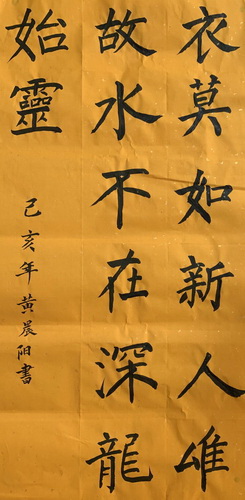 衣莫如新人唯
故水不在深龍
始靈
己亥年黄晨阳書